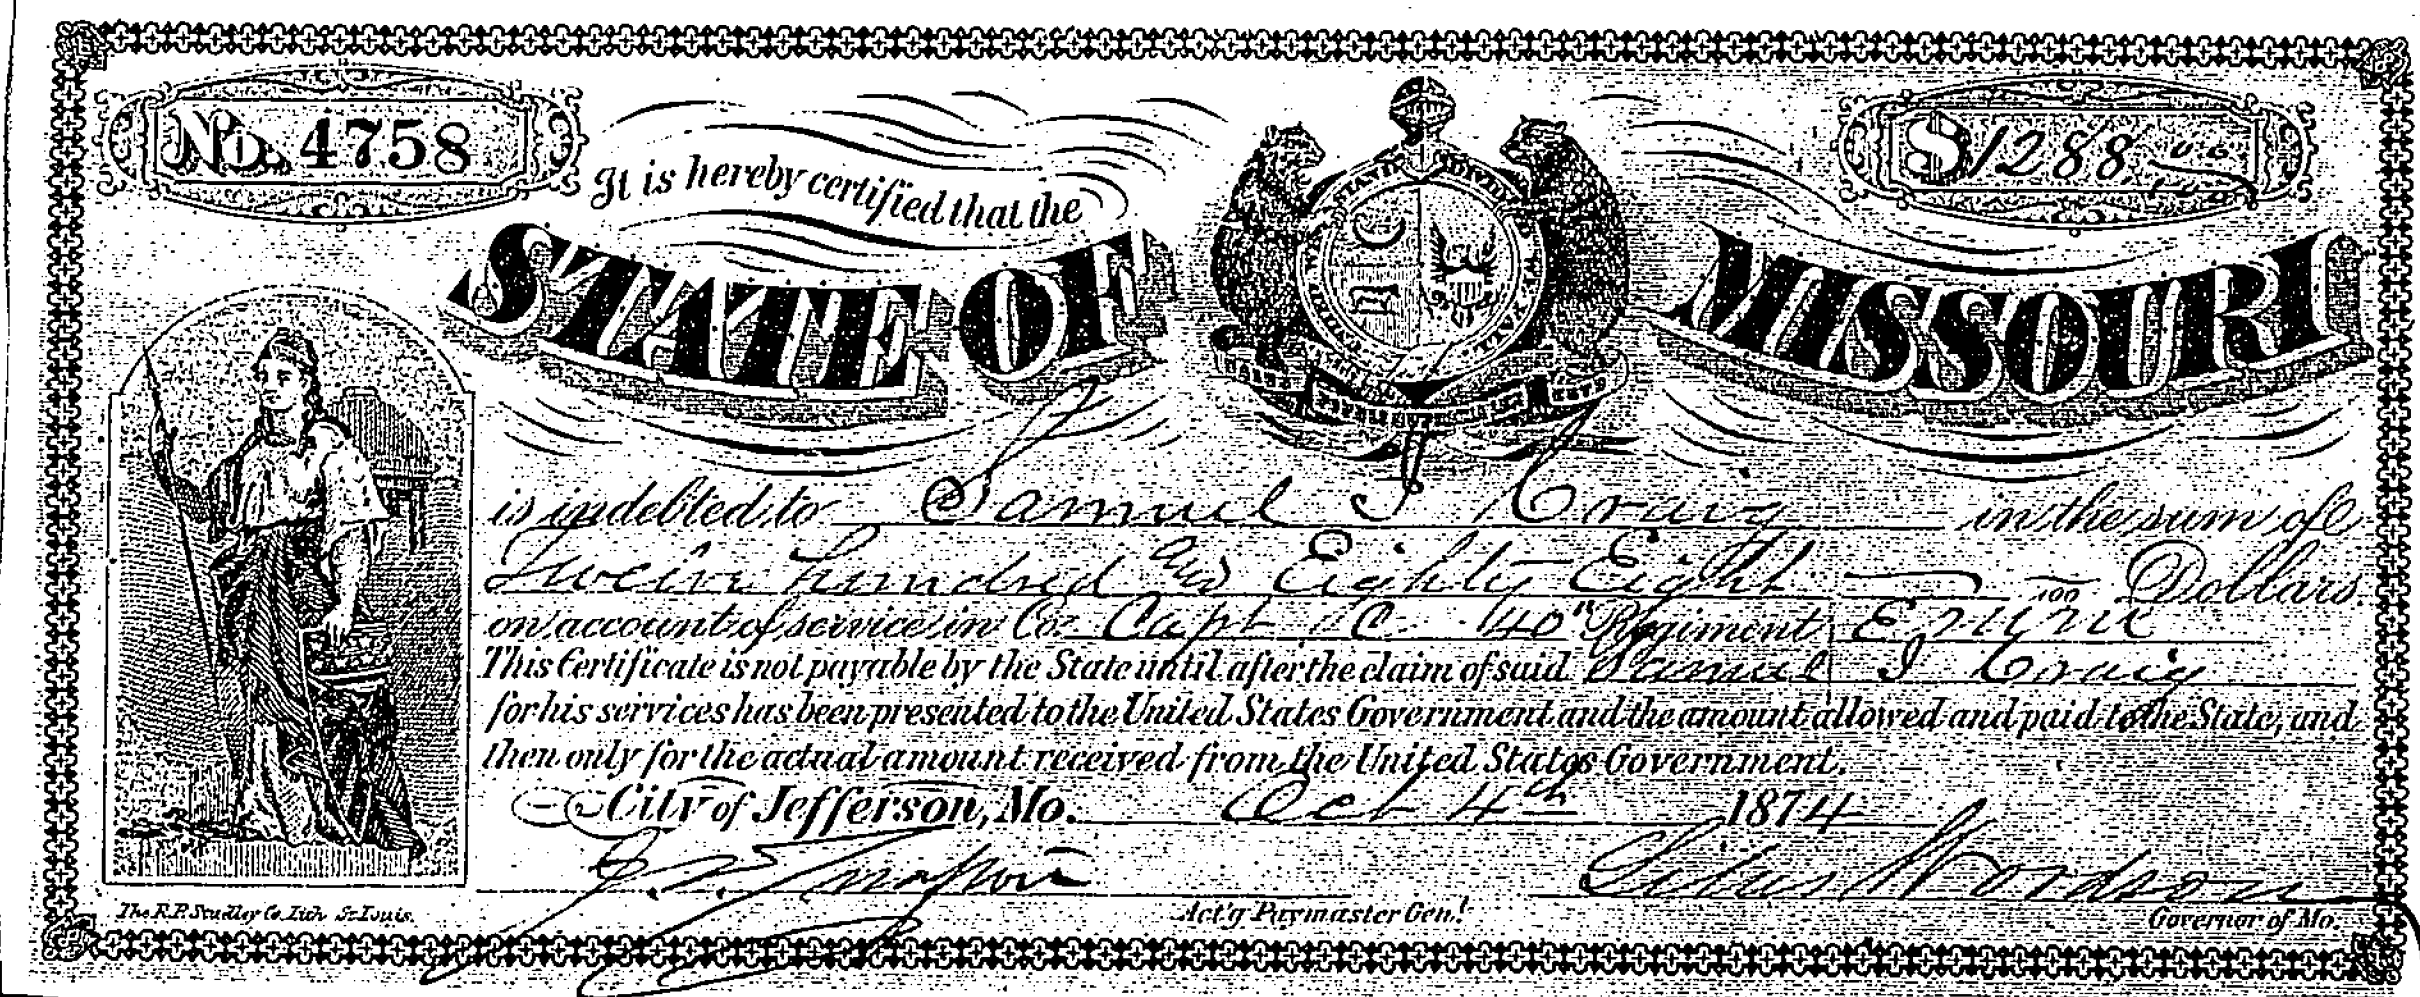 No. 4758
$1288 00/100
It is hereby certified that the
STATE OF MISSOURI
is indebted to Samuel I Craig in the sum of
Twelve hundred and Eighty Eight — /100 Dollars
on account of service in Co. Capt "C" 40" Regiment
This Certificate is not payable by the State until after the claim of said Samuel I Craig
for his services has been presented to the United States Government and the amount allowed and paid to the State, and
then only for the actual amount received from the United States Government.
City of Jefferson, Mo. Oct 4th 1874
Silas Woodson
Act'g Paymaster Gen!
Governor of Mo.
The R.P. Studley Co. Lith St. Louis.